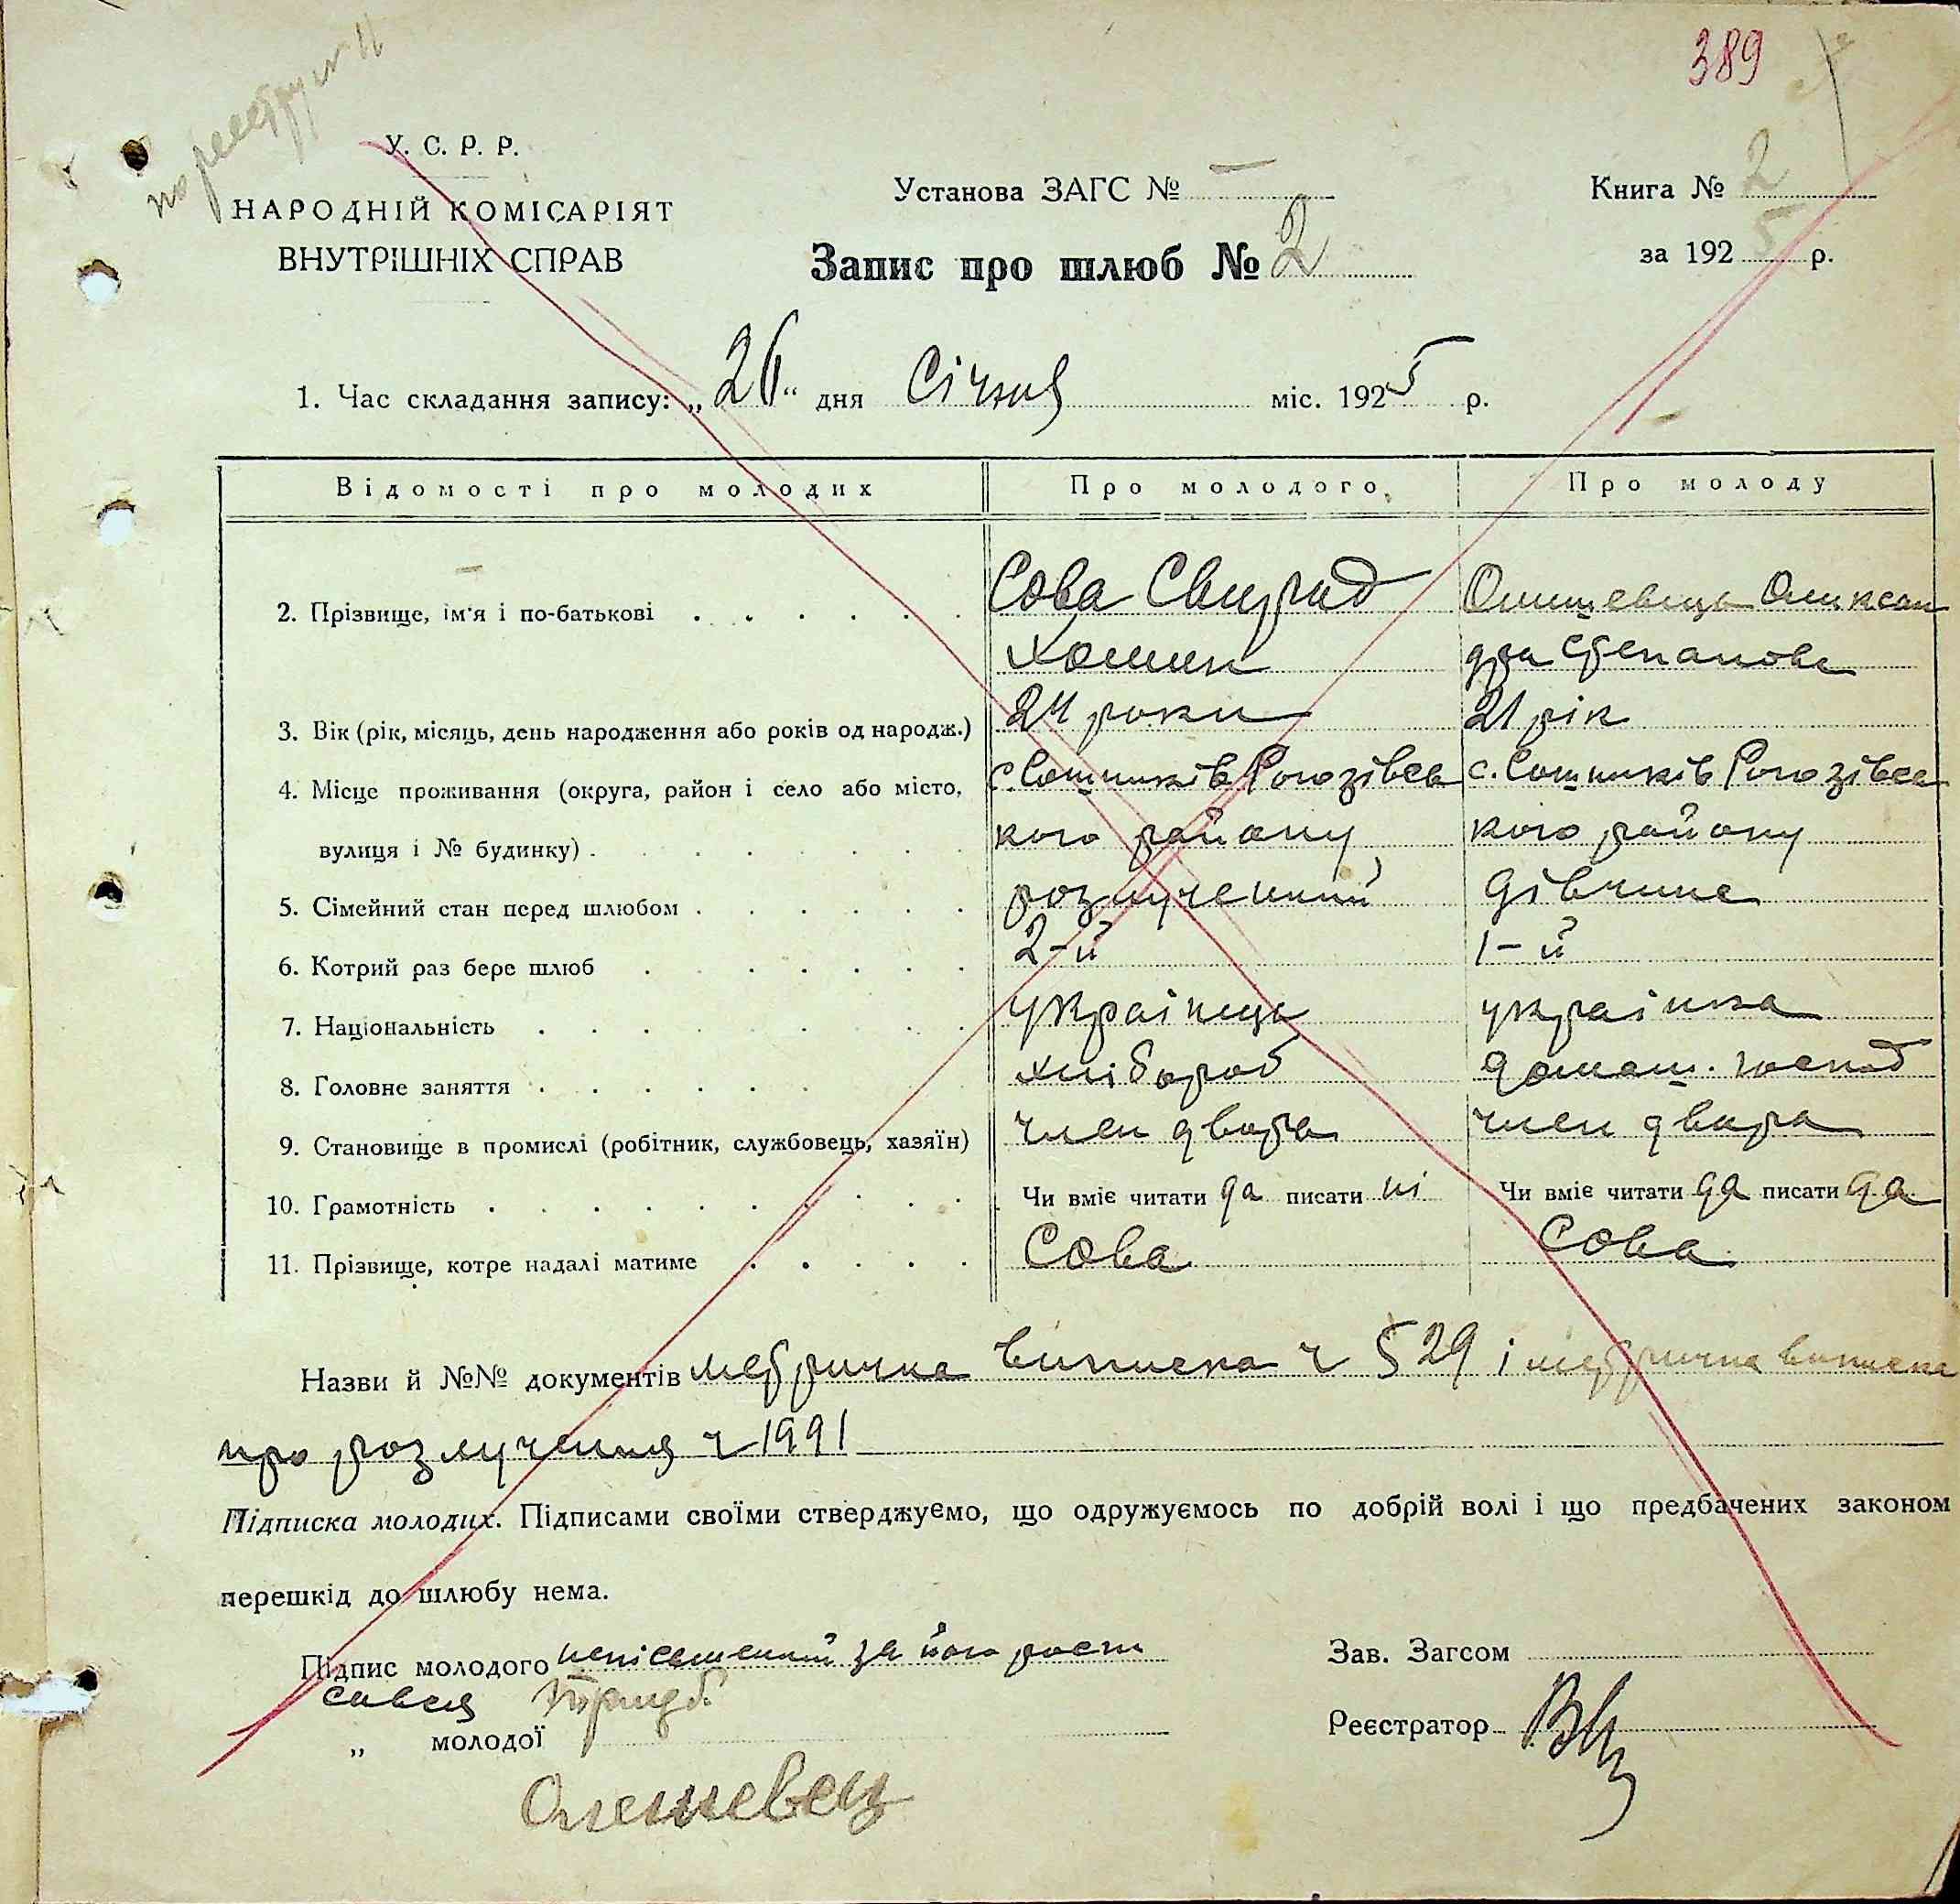 389
по реестру № 11
У. С. Р. Р.
НАРОДНІЙ КОМІСАРІЯТ
ВНУТРІШНІХ СПРАВ
Установа ЗАГС № —
Книга № 2
Запис про шлюб № 2
за 1925 р.
1. Час складання запису: „26“ дня Січня міс. 1925 р.
Відомості про молодих Про молодого Про молоду
2. Прізвище, ім'я і по-батькові Сова Свирид Олишевець Олексан
Хомич дра Степанова
3. Вік (рік, місяць, день народження або років од народж.) 24 роки 21 рік
4. Місце проживання (округа, район і село або місто, с. Сошників Рогозівсь с. Сошників Рогозівсь
вулиця і № будинку) кого району кого району
5. Сімейний стан перед шлюбом розлучений дівчина
6. Котрий раз бере шлюб 2-й 1-й
7. Національність українець українка
8. Головне заняття хлібороб домаш. господ
9. Становище в промислі (робітник, службовець, хазяїн) член двора член двора
10. Грамотність Чи вміє читати да писати ні Чи вміє читати да писати да
11. Прізвище, котре надалі матиме Сова Сова
Назви й №№ документів метрична виписка ч 529 і метрична виписка
про розлучення ч 1991
Підписка молодих. Підписами своїми стверджуємо, що одружуємось по добрій волі і що предбачених законом
перешкід до шлюбу нема.
Підпис молодого неписьменний за його роспи
сався
Зав. Загсом
„ молодої
Реєстратор
Олешевец